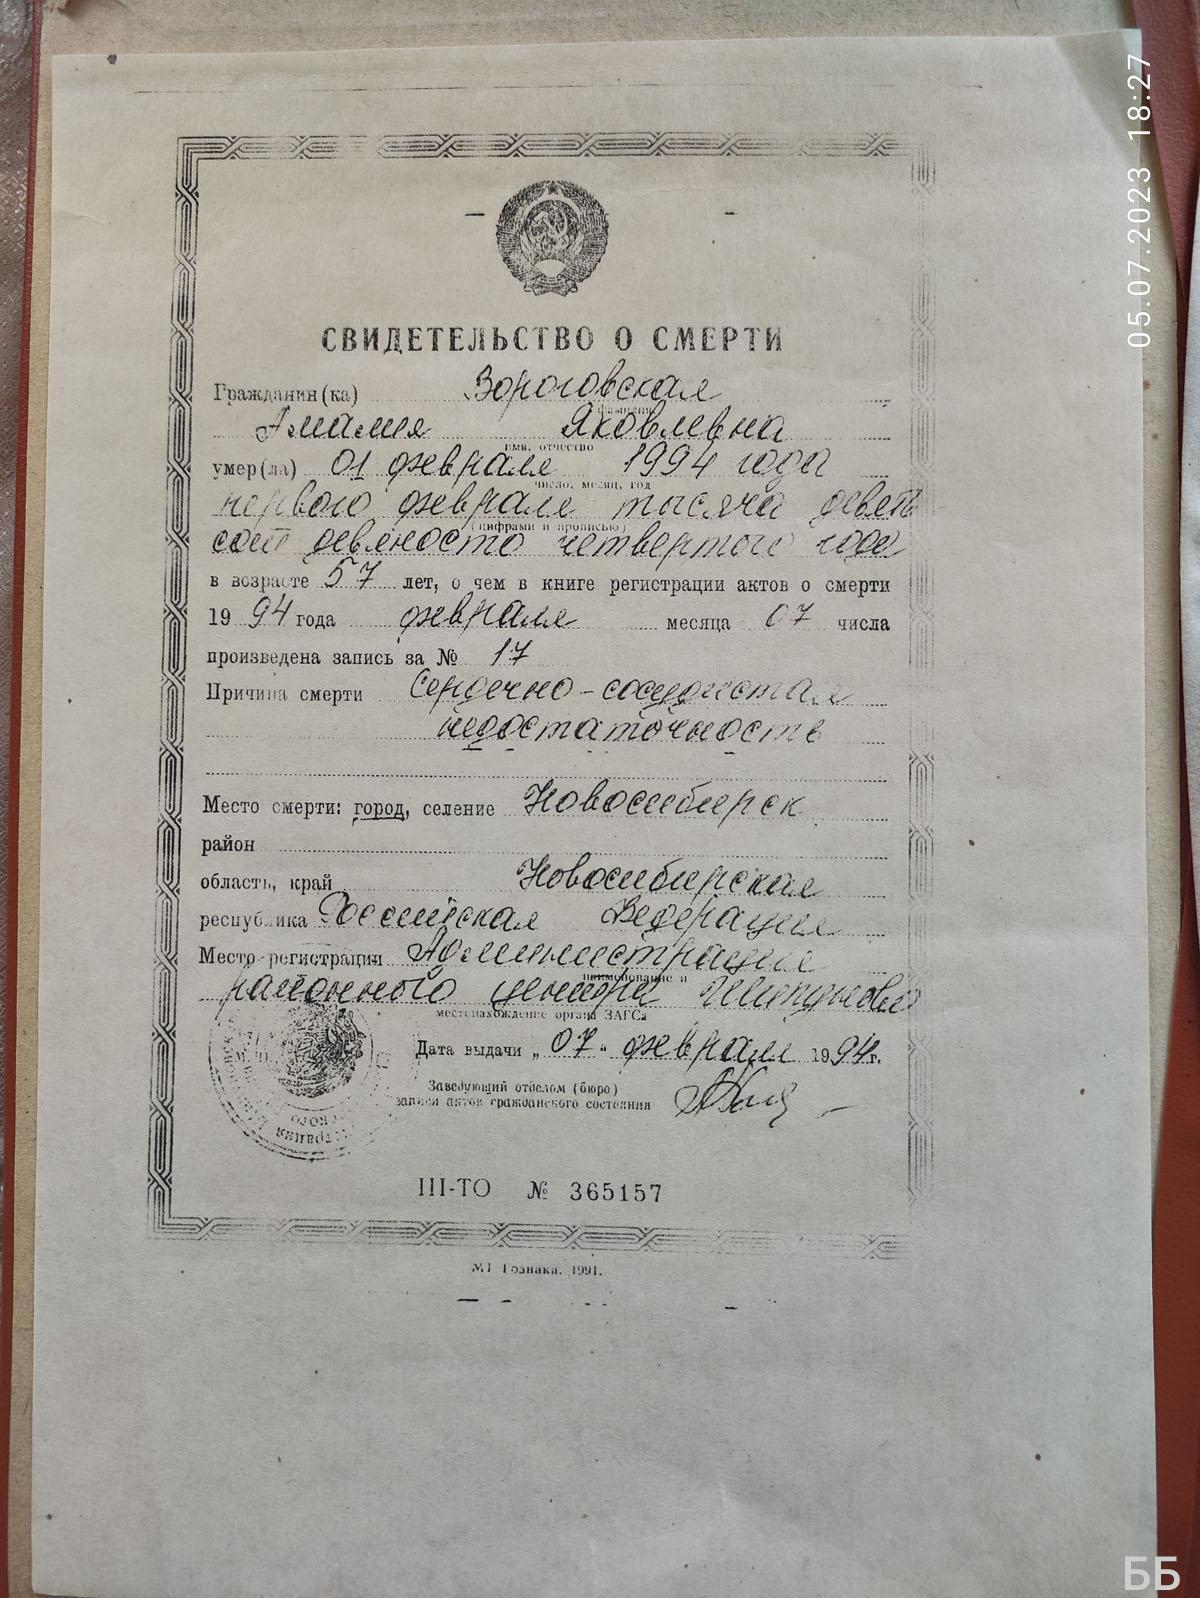 СВИДЕТЕЛЬСТВО О СМЕРТИ
Гражданин(ка) Вороговская
фамилия
Амалия Яковлевна
имя, отчество
умер(ла) 01 февраля 1994 года
число, месяц, год
первого февраля тысяча девять
(цифрами и прописью)
сот девяносто четвертого года
в возрасте 57 лет, о чем в книге регистрации актов о смерти
1994 года февраля месяца 07 числа
произведена запись за № 17
Причина смерти Сердечно-сосудистая
недостаточность
Место смерти: город, селение Новосибирск
район
область, край Новосибирская
республика Российская Федерация
Место регистрации Администрация
наименование и
районного центра Шипуново
местонахождение органа ЗАГСа
Дата выдачи „07" февраля 1994 г.
Заведующий отделом (бюро)
записи актов гражданского состояния
III-ТО № 365157
МТ Гознака. 1991.
05.07.2023 18:27
ББ